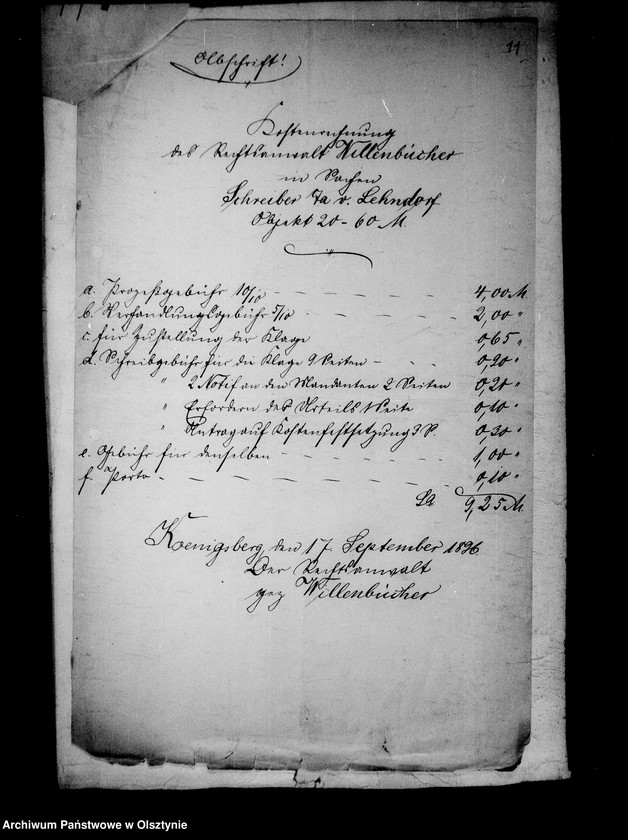 Abschrift!
11
Kostenrechnung
des Rechtsanwalt Willenbücher
in Sachen
Schreiber /a v. Lehndorf
Objekt 20 - 60 M.
a. Prozeßgebühr 10/10 - - - - 4,00 M.
b. Verhandlungsgebühr 5/10 - - - - 2,00 "
c. für Zustellung der Klage 0,65 "
d. Schreibgebühr für die Klage 9 Seiten - - - 0,90 "
" 2 Notif an den Mandanten 2 Seiten 0,20 "
" Erfordern des Urteils 1 Seite 0,10 "
" Antrag auf Kostenfestsetzung 3 S. 0,30 "
e. Gebühr für denselben - - - - 1,00 "
f. Porto - - - - - - 0,10 "
Sa 9,25 M.
Koenigsberg, den 17. September 1896
Der Rechtsanwalt
gez Willenbücher
Archiwum Państwowe w Olsztynie